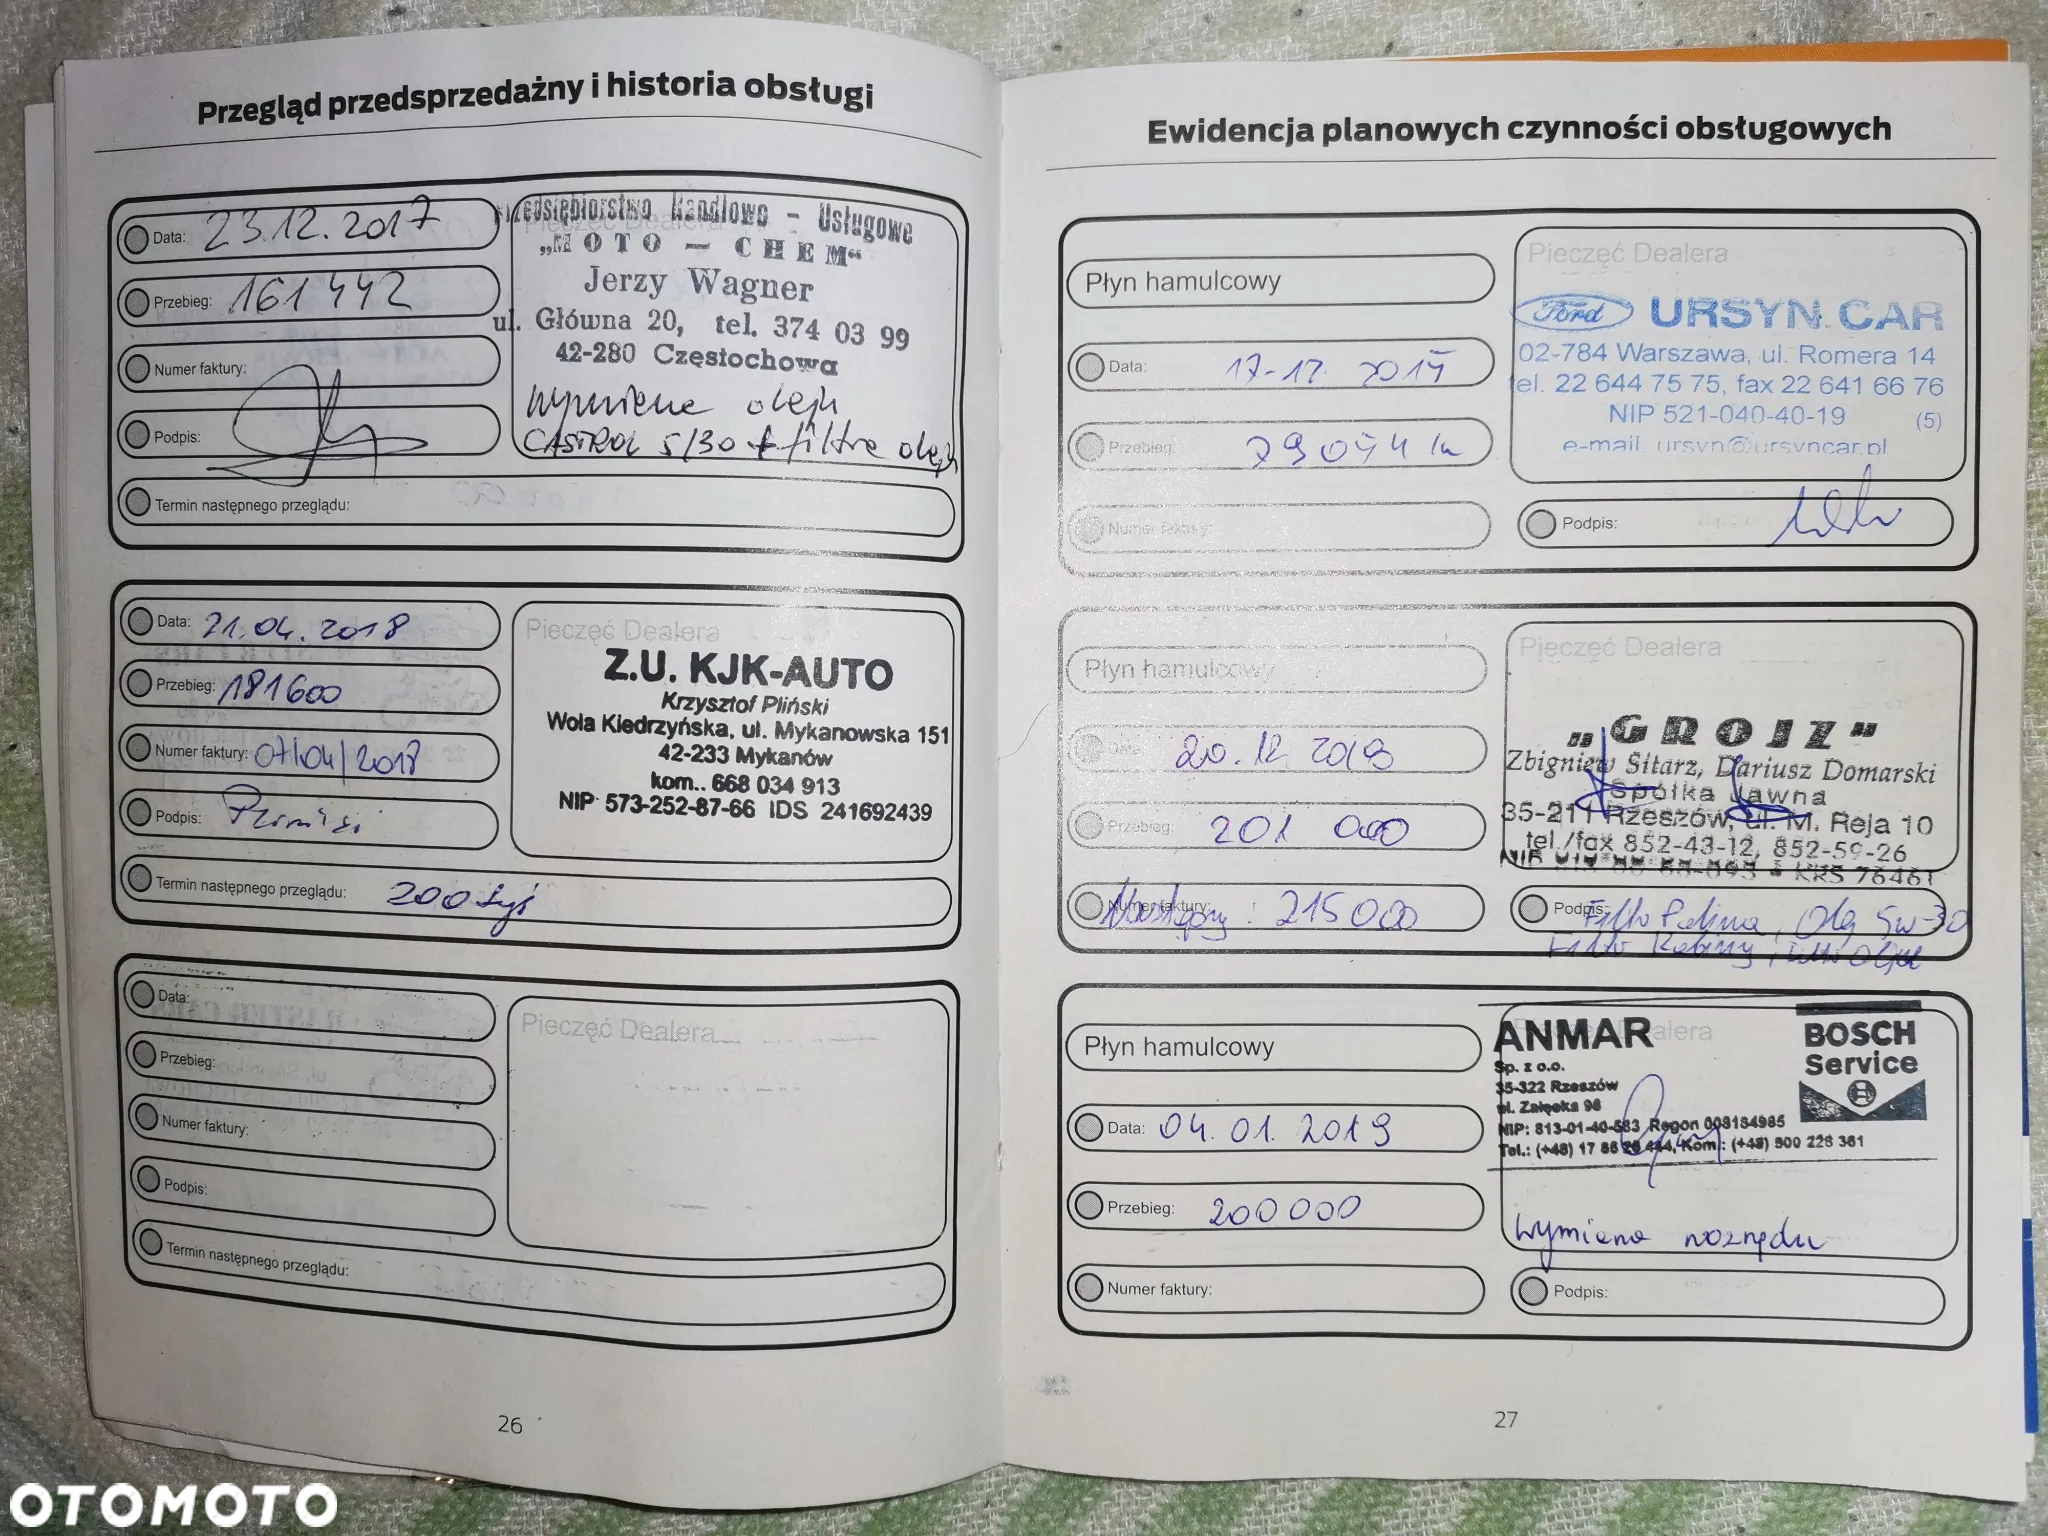 Przegląd przedsprzedażny i historia obsługi
Data: 23.12.2017
Przebieg: 161442
Numer faktury:
Podpis:
Termin następnego przeglądu:
Przedsiębiorstwo Handlowo - Usługowe
„MOTO - CHEM“
Jerzy Wagner
ul. Główna 20, tel. 374 03 99
42-280 Częstochowa
wymiana oleju
CASTROL 5/30 + filtra oleju
Data: 21.04.2018
Przebieg: 181600
Numer faktury: 07/04/2018
Podpis:
Termin następnego przeglądu: 200 tyś
Pieczęć Dealera
Z.U. KJK-AUTO
Krzysztof Pliński
Wola Kiedrzyńska, ul. Mykanowska 151
42-233 Mykanów
kom.. 668 034 913
NIP 573-252-87-66 IDS 241692439
Data:
Przebieg:
Numer faktury:
Podpis:
Termin następnego przeglądu:
Pieczęć Dealera
26
Ewidencja planowych czynności obsługowych
Płyn hamulcowy
Data: 17-12.
Przebieg:
Numer faktury:
Pieczęć Dealera
Ford URSYN CAR
02-784 Warszawa, ul. Romera 14
tel. 22 644 75 75, fax 22 641 66 76
NIP 521-040-40-19 (5)
e-mail. ursyn@ursyncar.pl
Podpis:
Płyn hamulcowy
Data: 20.12.2019
Przebieg: 201 000
Numer faktury: Następny: 215000
Pieczęć Dealera
„GROIZ"
Zbigniew Sitarz, Dariusz Domarski
Spółka Jawna
35-211 Rzeszów, ul. M. Reja 10
tel./fax 852-43-12, 852-59-26
KRS 76461
Podpis: Filtr Paliwa, Olej 5w-30
Filtr Kabiny, Filtr Oleju
Płyn hamulcowy
Data: 04.01.2019
Przebieg: 200000
Numer faktury:
Pieczęć Dealera
ANMAR
Sp. z o.o.
35-322 Rzeszów
ul. Załęska 96
NIP: 813-01-40-583 Regon 008184985
Tel.: (+48) 17 86 20 444, Kom.: (+48) 500 226 361
BOSCH
Service
wymiana rozrządu
Podpis:
27
OTOMOTO